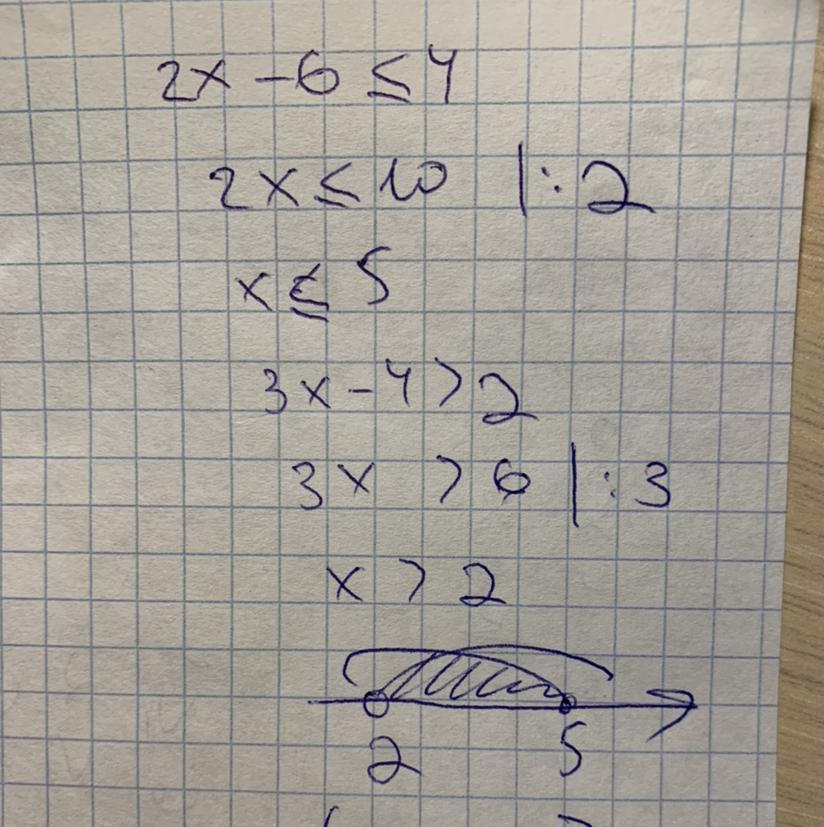 2x - 6 ≤ 4
2x ≤ 10 |:2
x ≤ 5
3x - 4 > 2
3x > 6 |:3
x > 2
2 5